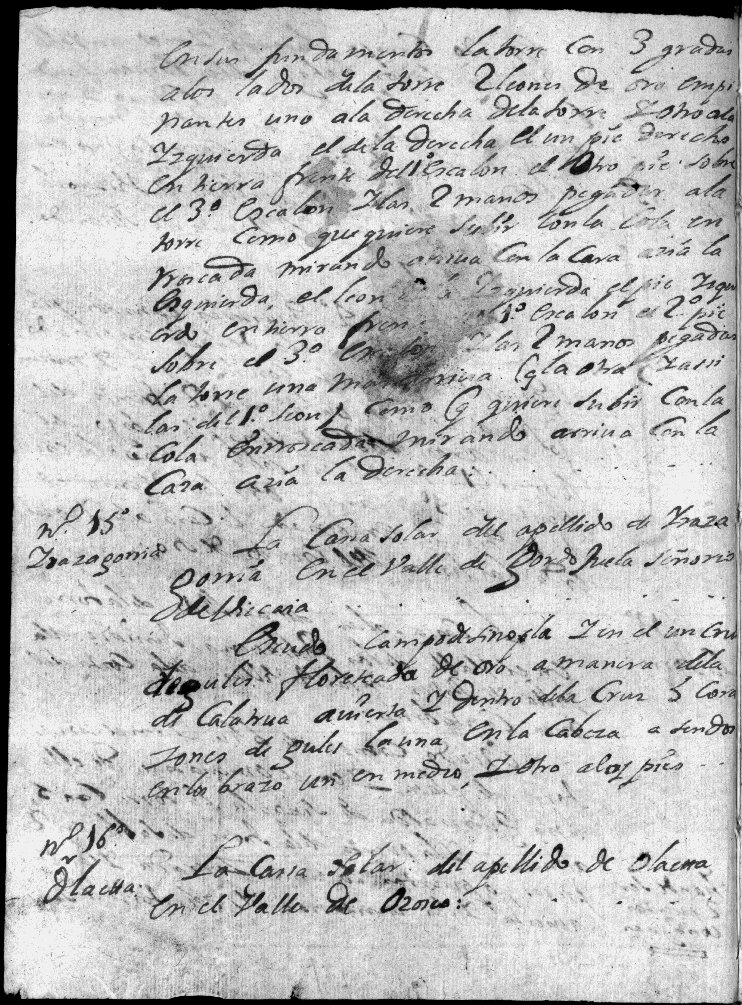 en sus fundamentos la torre con 3 gradas
a los lados dela torre 2 leones de oro empi
nantes uno ala derecha dela torre y otro ala
Yzquierda el de la derecha el un pie derecho
en tierra frente del 1º escalon el otro pie sobre
el 3º escalon y las 2 manos pegadas ala
torre como que quiere subir con la cola en
rroscada mirando arriva con la cara azia la
Esquierda, el leon Yzquierda el pie Yzqui
erdo en tierra 1º escalon el 2º pie
sobre el 3º y las 2 manos pegadas
la torre una mas arriva q la otra y assi
las del 1º leon como q quiere subir con la
cola enrroscada mirando arriva con la
cara azia la derecha:
nº 15º
Yrazagorria
La Cassa solar del apellido de Yraza
gorria en el Valle de Gordojuela señorio
de Vizcaia
Escudo campo de sinopla y en el un cruz
de gules floreteada de oro a manera dela
de Calatrua avierta y dentro dela Cruz 5 Cora
zones de gules la una en la Cabeza a sendos
en los brazo un en medio, y otro a los pies
nº 16º
Olaetta
La Cassa solar del apellido de Olaetta
en el Valle de Orozco: